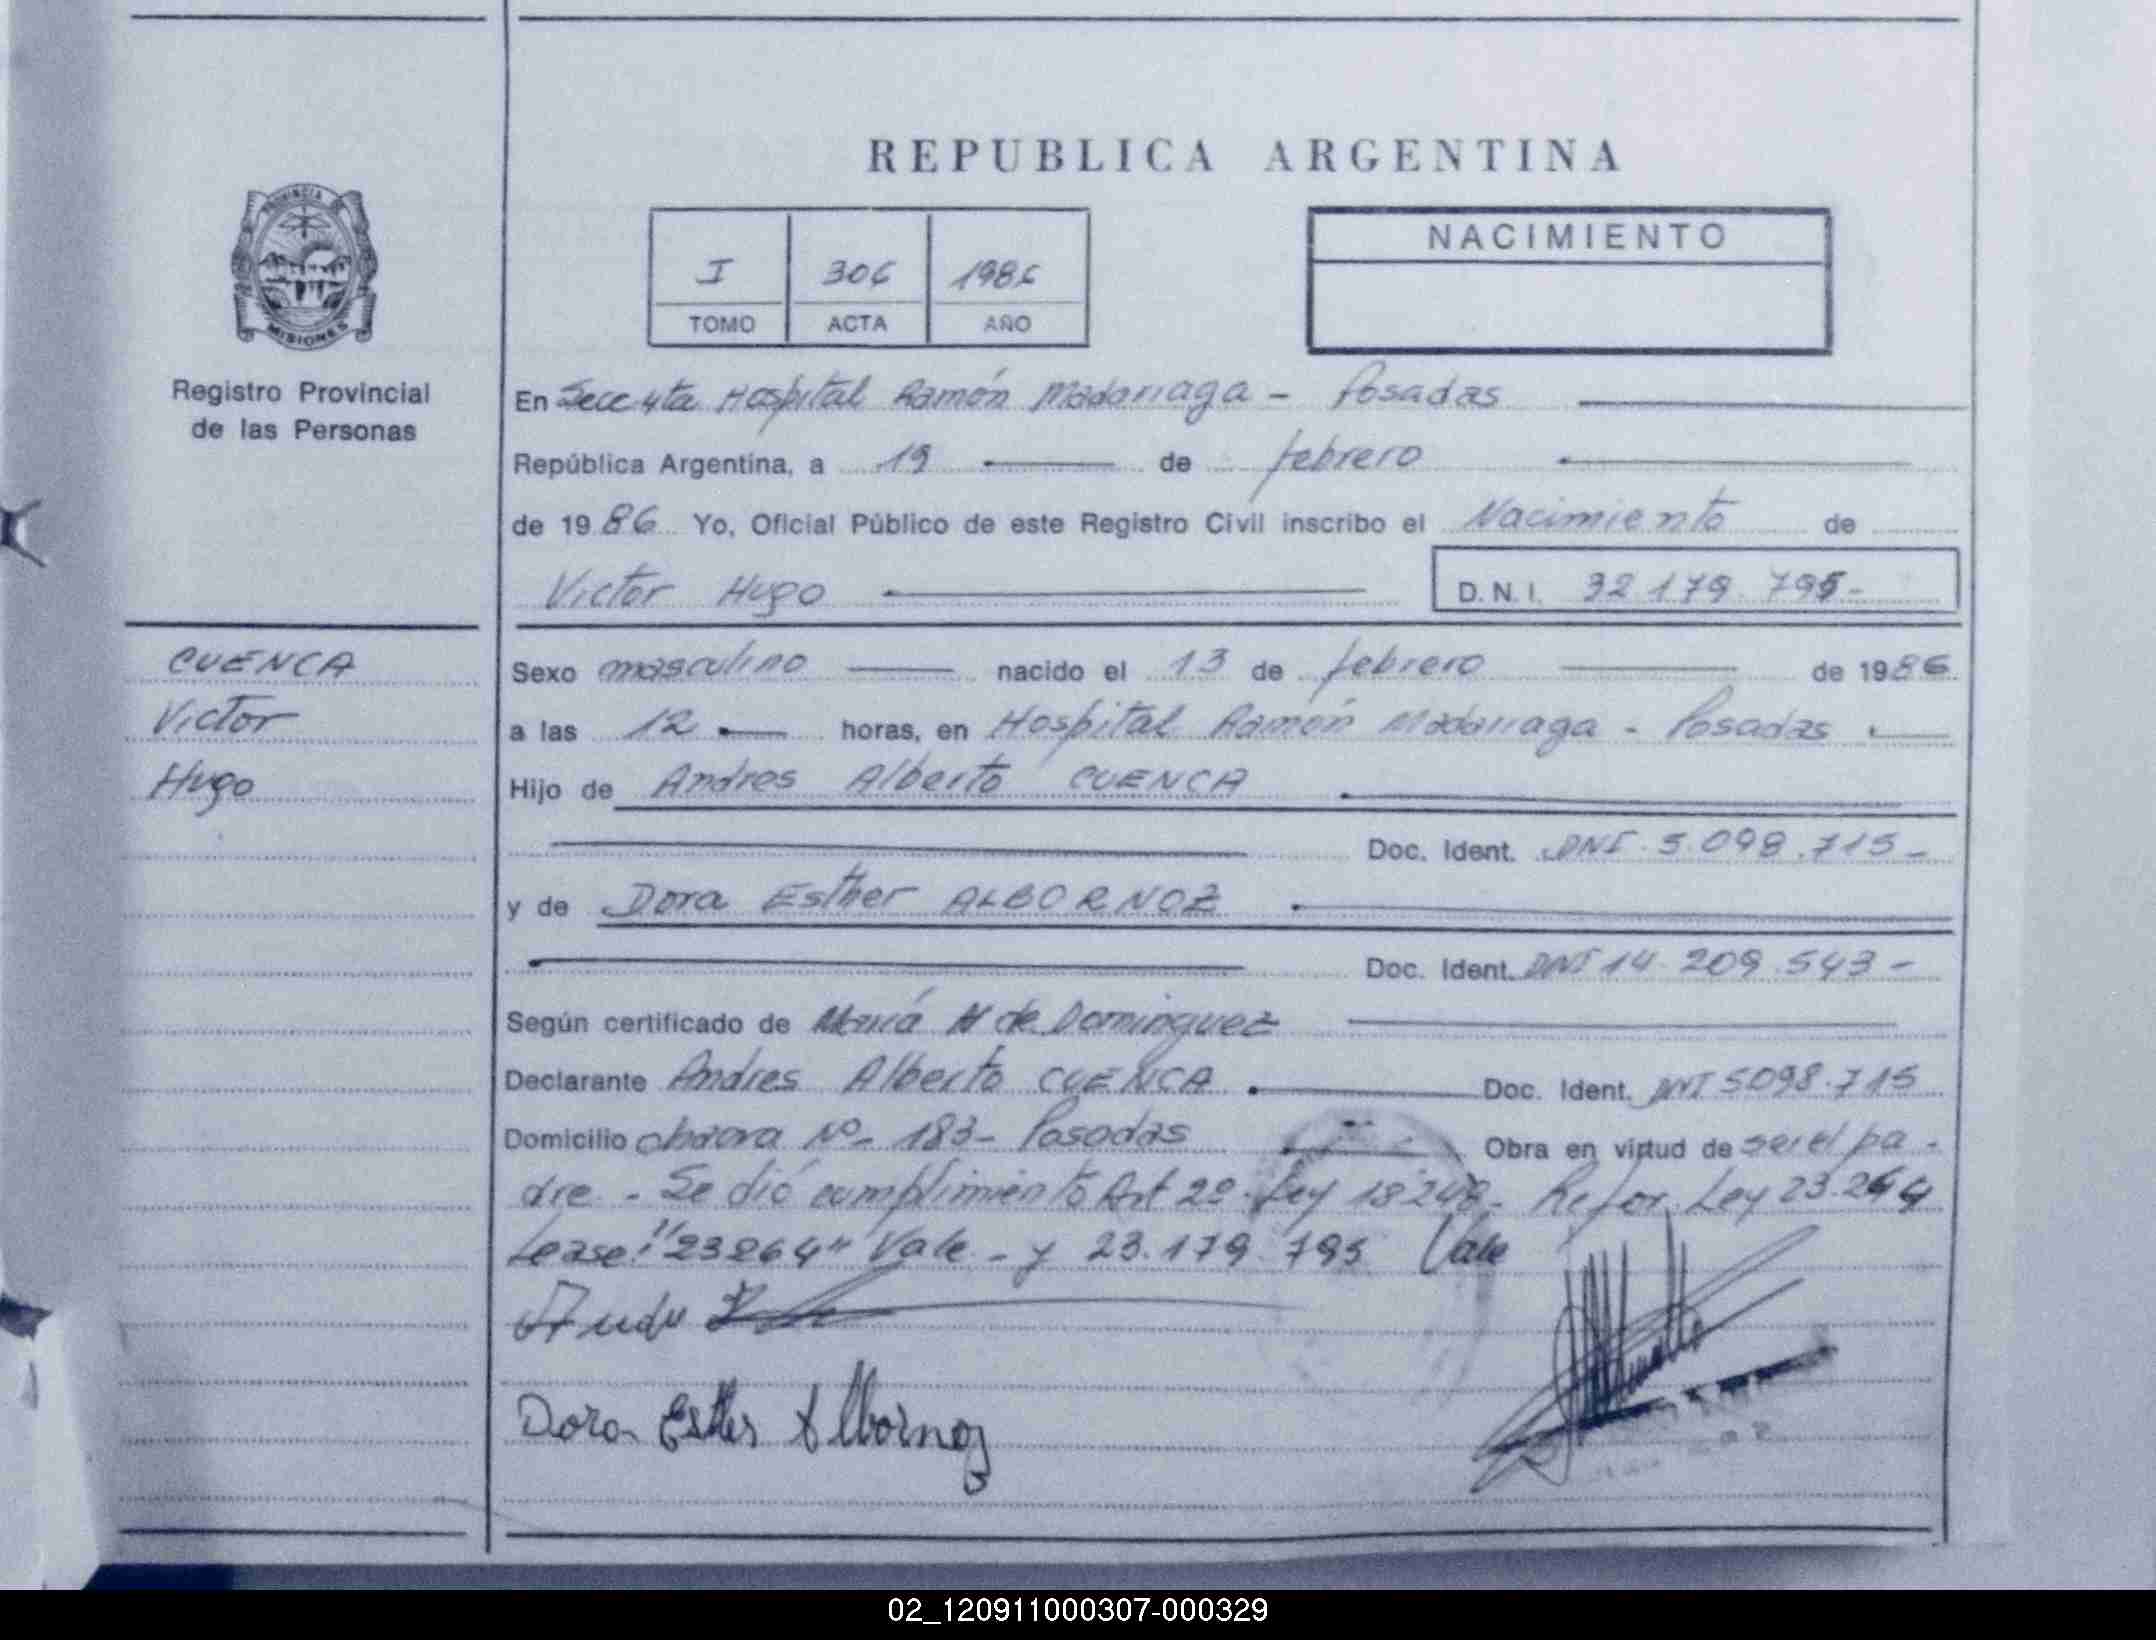 REPUBLICA ARGENTINA
PROVINCIA DE
MISIONES
Registro Provincial
de las Personas
I 306 1986
TOMO ACTA AÑO
NACIMIENTO
En Secc 4ta Hospital Ramón Madariaga - Posadas
República Argentina, a 19 de febrero
de 1986 Yo, Oficial Público de este Registro Civil inscribo el Nacimiento de
Victor Hugo D.N.I. 32 179 795-
CUENCA
Victor
Hugo
Sexo masculino nacido el 13 de febrero de 1986
a las 12 horas, en Hospital Ramón Madariaga - Posadas
Hijo de Andres Alberto CUENCA
Doc. Ident. DNI 5.098.715-
y de Dora Esther ALBORNOZ
Doc. Ident. DNI 14.209.543-
Según certificado de María de Dominguez
Declarante Andres Alberto CUENCA Doc. Ident. DNI 5098.715
Domicilio chacra Nº- 183- Posadas Obra en virtud de ser el pa-
dre - Se dió cumplimiento Art 2º Ley 18248- Refor. Ley 23.264
Lease: "23264" Vale - y 23.179.795 Vale
Dora Esther Albornoz
02_120911000307-000329